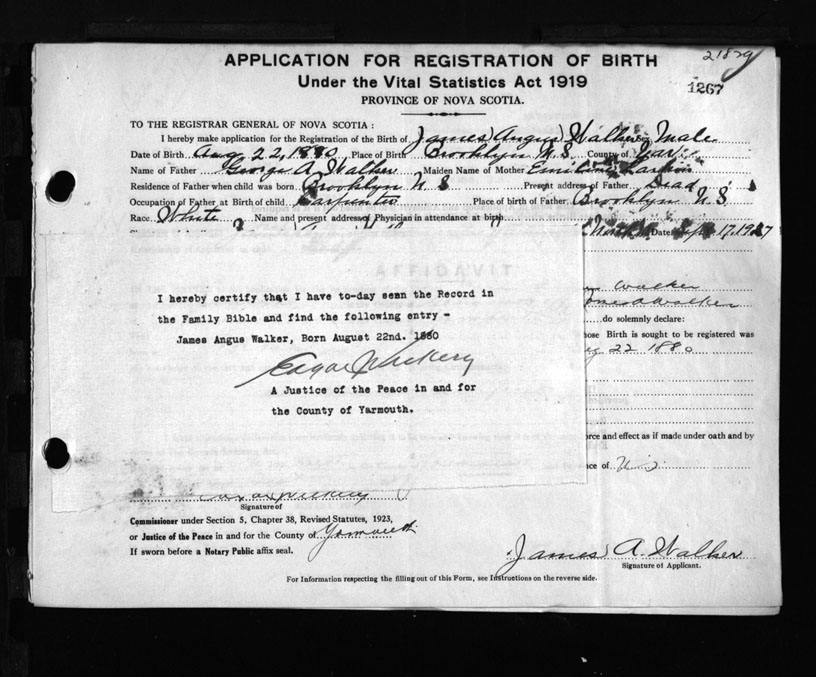 21829
APPLICATION FOR REGISTRATION OF BIRTH
Under the Vital Statistics Act 1919
1267
PROVINCE OF NOVA SCOTIA.
TO THE REGISTRAR GENERAL OF NOVA SCOTIA:
I hereby make application for the Registration of the Birth of James Angus Walker Sex Male
Date of Birth Aug 22, 1880 Place of Birth Brooklyn N.S. County of Yar
Name of Father George A Walker Maiden Name of Mother
Residence of Father when child was born Brooklyn N S Present address of Father Dead
Occupation of Father at Birth of child Carpenter Place of birth of Father Brooklyn N. S.
Race White Name and present address of Physician in attendance at birth
Date Sept 17, 1927
Walker
James A Walker
do solemnly declare:
I hereby certify that I have to-day seen the Record in
the Family Bible and find the following entry -
James Angus Walker, Born August 22nd. 1880
whose Birth is sought to be registered was
Aug 22 1880
Edgar Vickery
A Justice of the Peace in and for
the County of Yarmouth.
force and effect as if made under oath and by
Signature of
Commissioner under Section 5, Chapter 38, Revised Statutes, 1923,
or Justice of the Peace in and for the County of Yarmouth
If sworn before a Notary Public affix seal.
James A. Walker
Signature of Applicant.
For Information respecting the filling out of this Form, see Instructions on the reverse side.